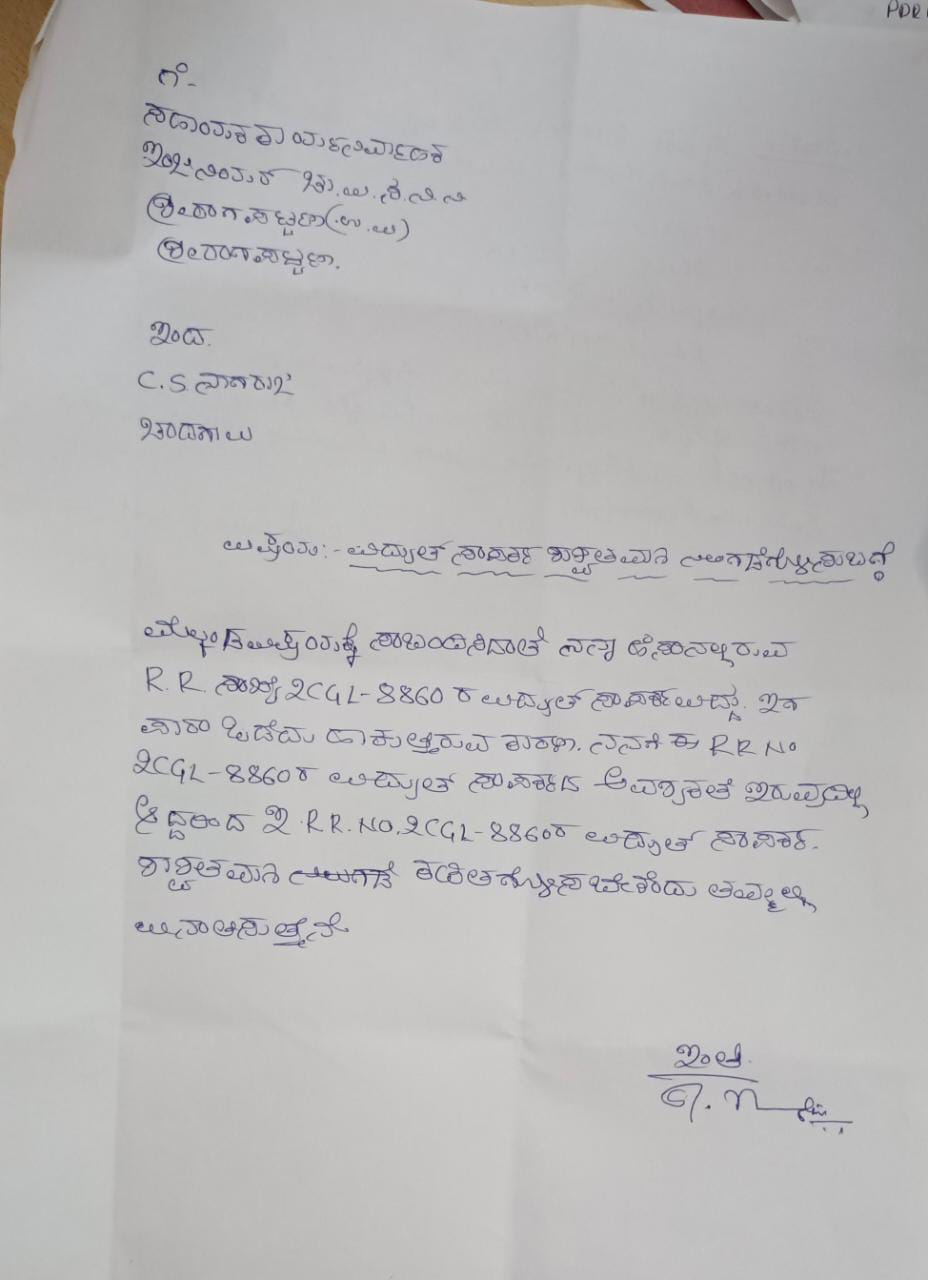 PDR
ಗೆ-
ಸಹಾಯಕ ಕಾರ್ಯನಿರ್ವಾಹಕ
ಇಂಜಿನಿಯರ್ ಚಾ.ವಿ.ಸ.ನಿ.ನಿ
ಶ್ರೀರಂಗಪಟ್ಟಣ(ಉ.ವಿ)
ಶ್ರೀರಂಗಪಟ್ಟಣ.
ಇಂದ.
C.S ನಾಗರಾಜ್
ಚಂದಗಾಲು
ವಿಷಯ:- ವಿದ್ಯುತ್ ಸಂಪರ್ಕ ಶಾಶ್ವತವಾಗಿ ನಿಲುಗಡೆಗೊಳಿಸುವ ಬಗ್ಗೆ
ಮೇಲ್ಕಂಡ ವಿಷಯಕ್ಕೆ ಸಂಬಂದಿಸಿದಂತೆ ನನ್ನ ಹೆಸರಿನಲ್ಲಿರುವ
R.R. ಸಂಖ್ಯೆ 2CGL-8860 ರ ವಿದ್ಯುತ್ ಸಂಪರ್ಕವಿದ್ದು. ಇದ
ಒಡೆದು ಹಾಕುತ್ತಿರುವ ಕಾರಣ. ನನಗೆ ಈ RR No
2CGL-8860ರ ವಿದ್ಯುತ್ ಸಂಪರ್ಕದ ಅವಶ್ಯಕತೆ ಇರುವುದಿಲ್ಲ
ಆದ್ದರಿಂದ ಈ. RR.NO.2CGL-8860ರ ವಿದ್ಯುತ್ ಸಂಪರ್ಕ.
ಶಾಶ್ವತವಾಗಿ ಕಡಿತಗೊಳಿಸಬೇಕೆಂದು ತಮ್ಮಲ್ಲಿ
ವಿನಂತಿಸುತ್ತೇನೆ
ಇಂತಿ.